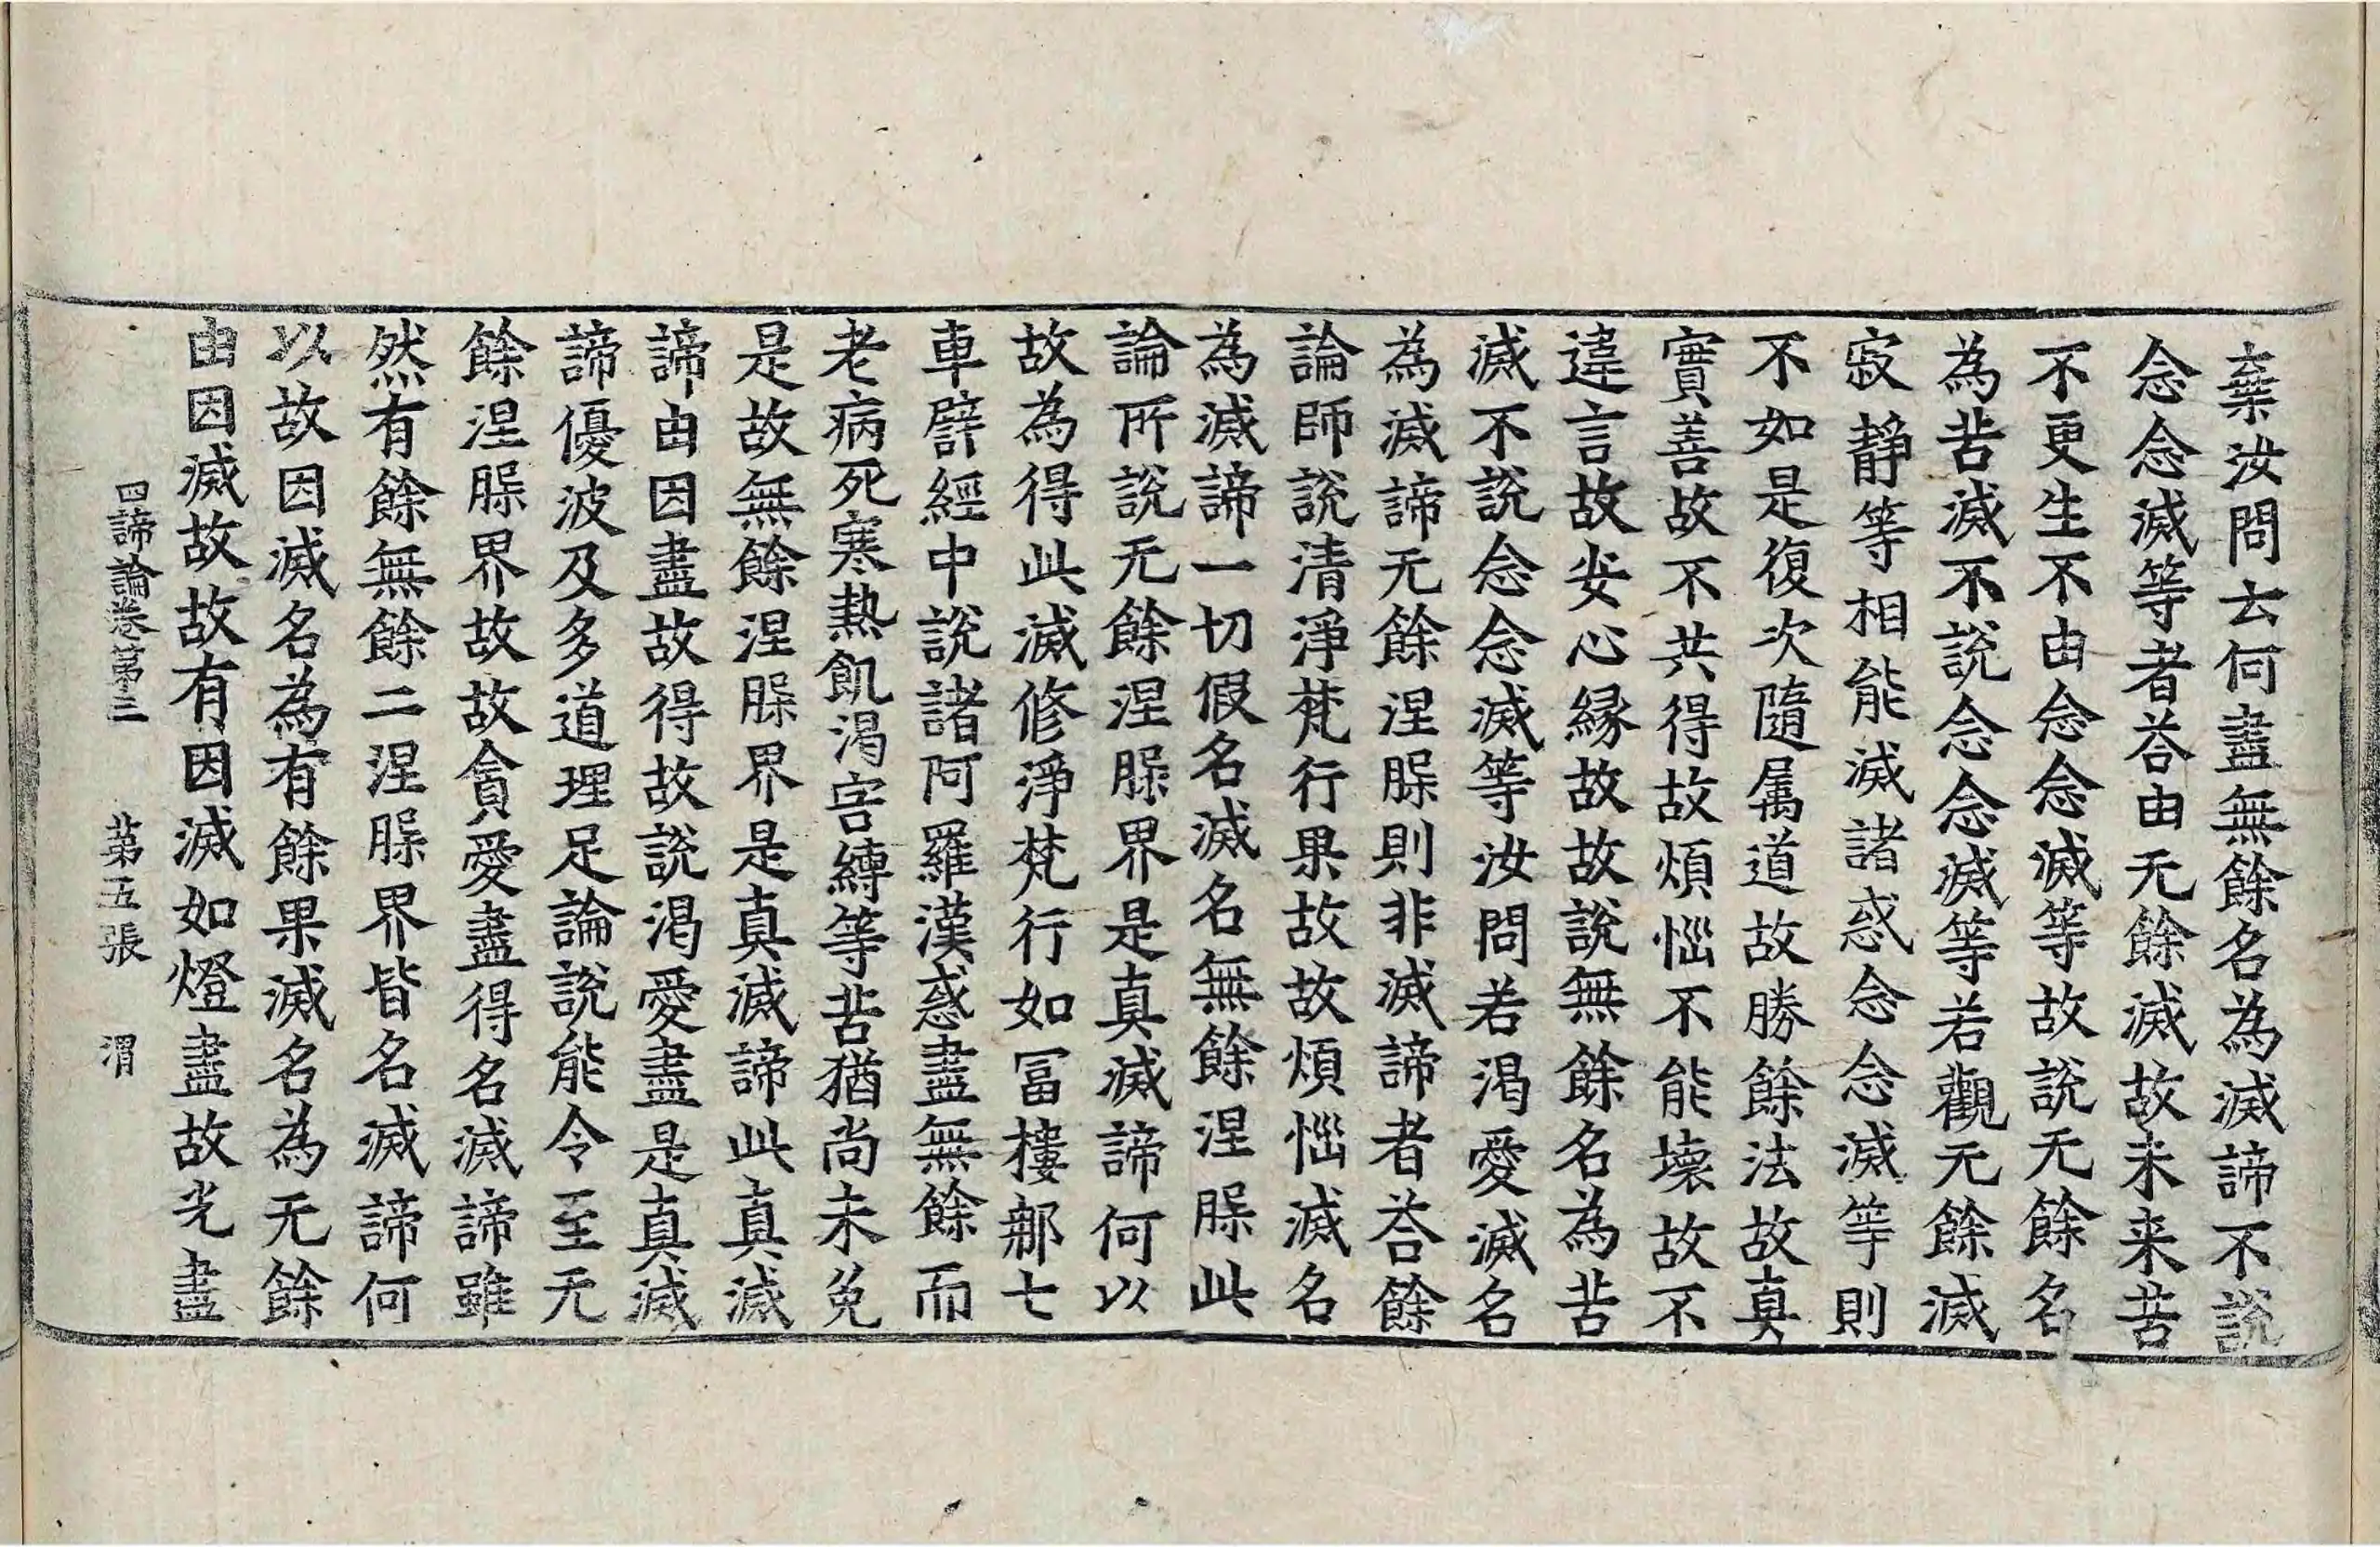 棄汝問云何盡無餘名為滅諦不說
念念滅等者荅由无餘滅故未来苦
不更生不由念念滅等故說无餘名
為苦滅不說念念滅等若觀无餘滅
寂静等相能滅諸惑念念滅等則
不如是復次隨属道故勝餘法故真
實善故不共得故煩惱不能壞故不
違言故安心緣故故說無餘名為苦
滅不說念念滅等汝問若渴愛滅名
為滅諦无餘涅槃則非滅諦者荅餘
論師說清淨梵行果故故煩惱滅名
為滅諦一切假名滅名無餘涅槃此
論所說无餘涅槃界是真滅諦何以
故為得此滅修淨梵行如冨樓那七
車譬經中說諸阿羅漢惑盡無餘而
老病死寒熱飢渴害縛等苦猶尚未免
是故無餘涅槃界是真滅諦此真滅
諦由因盡故得故說渴愛盡是真滅
諦優波及多道理足論說能令至无
餘涅槃界故故貪愛盡得名滅諦雖
然有餘無餘二涅槃界皆名滅諦何
以故因滅名為有餘果滅名為无餘
由因滅故故有因滅如燈盡故光盡
四諦論卷第三 苐五張 渭